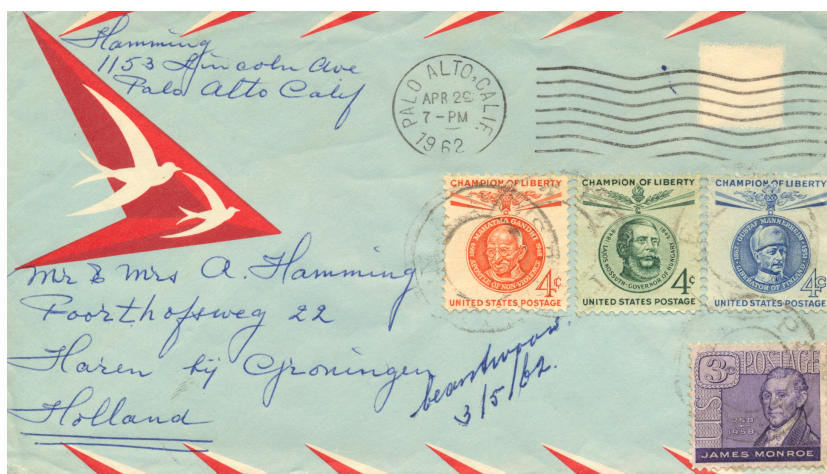 Hamming
1153 Lincoln Ave
Palo Alto Calif
PALO ALTO, CALIF.
APR 29
7 - PM
1962
CHAMPION OF LIBERTY
MAHATMA GANDHI
APOSTLE OF NON-VIOLENCE
4¢
UNITED STATES POSTAGE
CHAMPION OF LIBERTY
LAJOS KOSSUTH - GOVERNOR OF HUNGARY
4¢
UNITED STATES POSTAGE
CHAMPION OF LIBERTY
GUSTAF MANNERHEIM
LIBERATOR OF FINLAND
4¢
UNITED STATES POSTAGE
Mr & Mrs A. Hamming
Poorthofsweg 22
Haren bij Groningen
Holland
beantwoord
3/5/62.
3¢ POSTAGE
US
1758
1958
JAMES MONROE